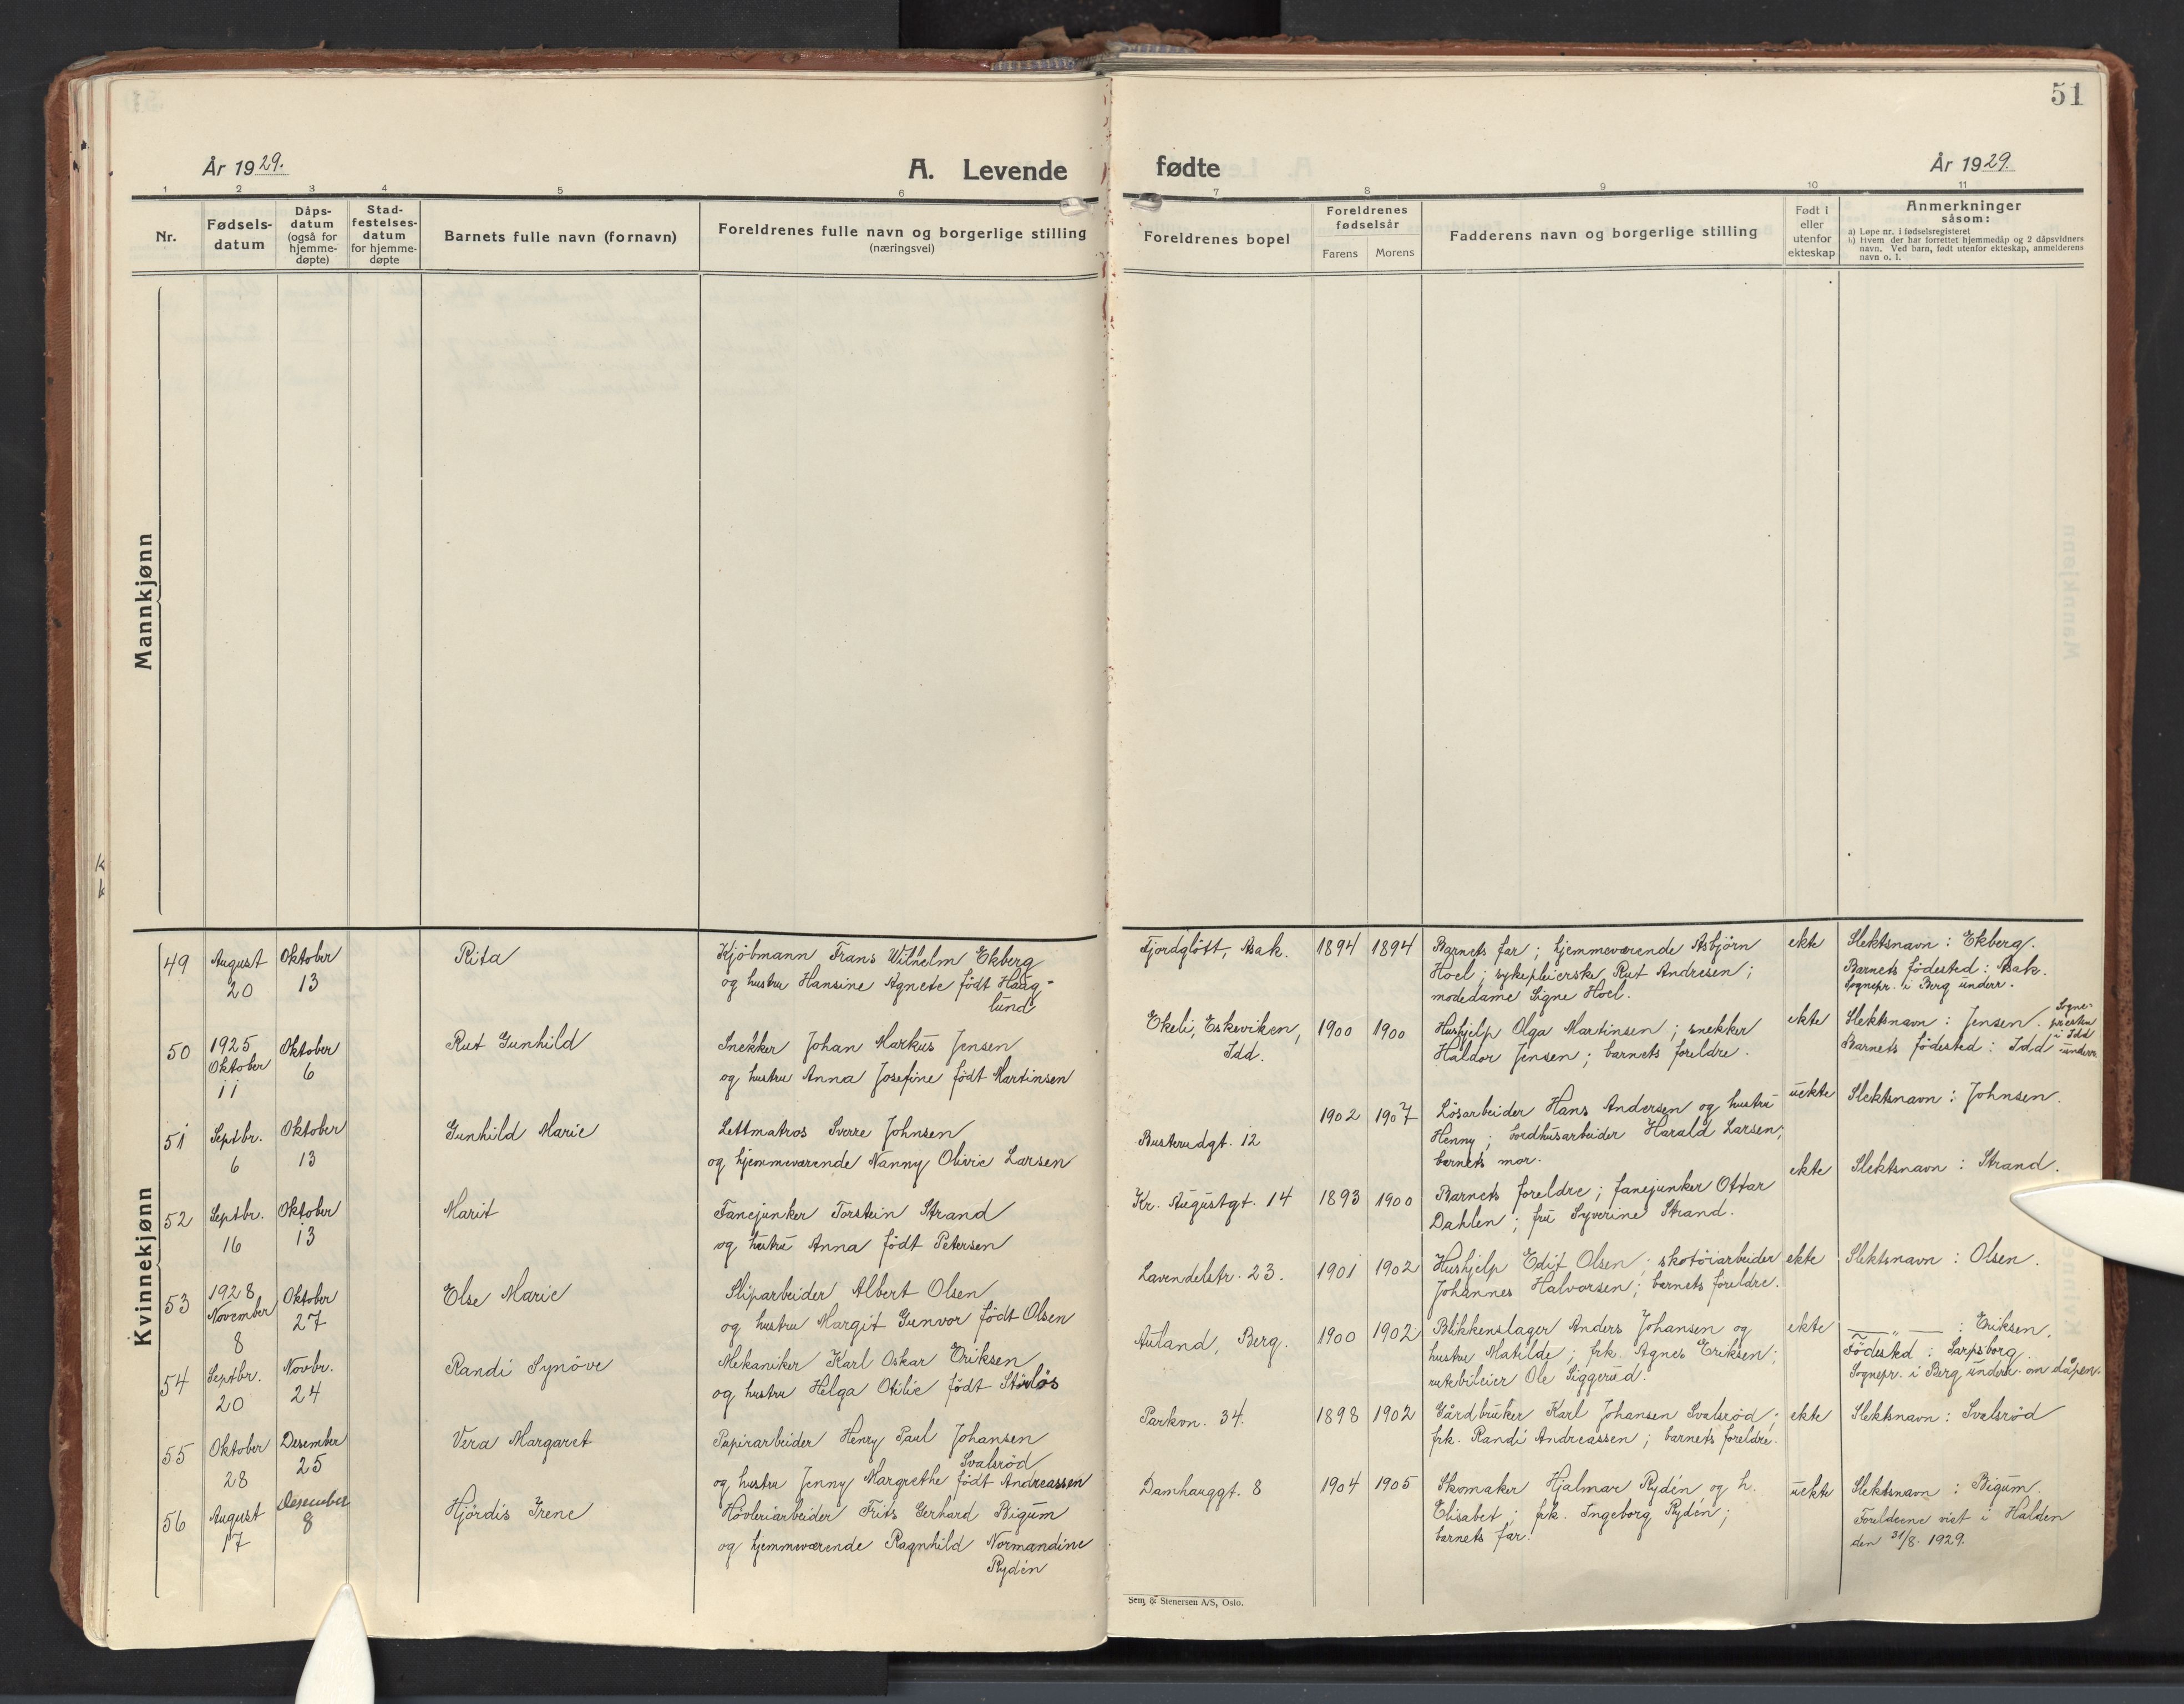 51
År 1929.
A. Levende fødte
År 1929.
1 2 3 4 5 6 7 8 9 10 11
Nr.
Fødsels-
datum
Dåps-
datum
(også for
hjemme-
døpte)
Stad-
festelses-
datum
for hjemme-
døpte
Barnets fulle navn (fornavn)
Foreldrenes fulle navn og borgerlige stilling
(næringsvei)
Foreldrenes bopel
Foreldrenes
fødselsår
Farens Morens
Fadderens navn og borgerlige stilling
Født i
eller
utenfor
ekteskap
Anmerkninger
såsom:
a) Løpe nr. i fødselsregisteret
b) Hvem der har forrettet hjemmedåp og 2 dåpsvidners
navn. Ved barn, født utenfor ekteskap, anmelderens
navn o. l.
Mannkjønn
k
k
Kvinnekjønn
49
August
20
Oktober
13
Rita
Kjöbmann Frans Wilhelm Ekberg
og hustru Hansine Agnete födt Haug-
lund
Fjordglött, Asak.
1894 1894
Barnets far; hjemmeværende Asbjörn
Hoel; sykepleierske Rut Andresen;
modedame Signe Hoel.
ekte
Slektsnavn: Ekberg.
Barnets födested: Asak.
Sognepr. i Berg underr.
50
1925
Oktober
11
Oktober
6
Rut Gunhild
Snekker Johan Markus Jensen
og hustru Anna Josefine födt Martinsen
Ekeli, Eskeviken,
Idd.
1900 1900
Hushjelp Olga Martinsen; snekker
Haldor Jensen; barnets foreldre.
ekte
Slektsnavn: Jensen.
Barnets födested: Idd
Sogne-
presten
i Idd
underr.
51
Septbr.
6
Oktober
13
Gunhild Marie
Lettmatros Sverre Johnsen
og hjemmeværende Nanny Olivie Larsen
Busterudgt. 12
1902 1907
Lösarbeider Hans Andersen og hustru
Henny; bordhusarbeider Harald Larsen;
barnets mor.
uekte
Slektsnavn: Johnsen.
52
Septbr.
16
Oktober
13
Marit
Fanejunker Torstein Strand
og hustru Anna födt Petersen
Kr. Augustgt. 14
1893 1900
Barnets foreldre; fanejunker Ottar
Dahlen; fru Syverine Strand.
ekte
Slektsnavn: Strand.
53
1928
November
8
Oktober
27
Else Marie
Sliparbeider Albert Olsen
og hustru Margit Gunvor födt Olsen
Lavendelstr. 23.
1901 1902
Hushjelp Edit Olsen; skotöiarbeider
Johannes Halvorsen; barnets foreldre.
ekte
Slektsnavn: Olsen.
54
Septbr.
20
Novbr.
24
Randi Synöve
Mekaniker Karl Oskar Eriksen
og hustru Helga Otilie födt
Autand, Berg.
1900 1902
Blikkenslager Anders Johansen og
hustru Matilde; frk. Agnes Eriksen;
rutebileier Ole Siggerud.
ekte
— " — : Eriksen.
Födested: Sarpsborg.
Sognepr. i Berg underr. om dåpen.
55
Oktober
28
Desember
25
Vera Margaret
Papirarbeider Henry Paul Johansen
Svalsröd
og hustru Jenny Margrethe födt Andreassen
Parkvn. 34.
1898 1902
Gårdbruker Karl Johansen Svalsröd;
frk. Randi Andreassen; barnets foreldre.
ekte
Slektsnavn: Svalsröd
56
August
17
Desember
8
Hjördis Irene
Hövleriarbeider Frits Gerhard Bigum
og hjemmeværende Ragnhild Normandine
Rydén
Damhauggt. 8
1904 1905
Skomaker Hjalmar Rydén og h.
Elisabet; frk. Ingeborg Rydén;
barnets far.
uekte
Slektsnavn: Bigum.
Foreldrene viet i Halden
den 31/8. 1929.
Sem & Stenersen A/S, Oslo.